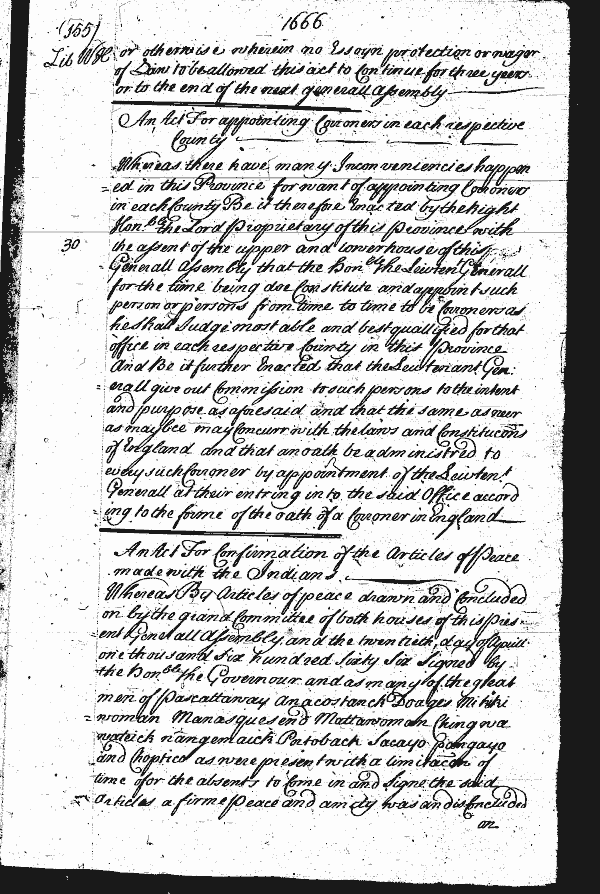 (155) 1666
Lib WH
or otherwise wherein no Essoyn protection or wager
of Law to be allowed this act to Continue for three yeers
or to the end of the next generall assembly
An Act For appointing Coroners in each respective
County
Whereas there have many Inconveniencies happen
=ed in this Province for want of appointing Coroners
in each County Be it therefore Enacted by the Right
Hon.ble the Lord Proprietary of this Province with
30 the assent of the upper and lower house of this
Generall Assembly that the Hon.ble the Lewten.t Generall
for the time being doe Constitute and appoint such
person or persons from time to time to be Coroners as
he shall Judge most able and best qualifyed for that
office in each respective County in this Province
And Be it further Enacted that the Leiutenant Gen:
=erall give out Commission to such persons to the intent
and purpose as aforesaid and that the same as neer
as may bee may Concurr with the laws and Constitucons
of England and that an oath be administred to
every such Coroner by appointment of the Lewten.t
Generall at their entring into the said Office accord
=ing to the forme of the oath of a Coroner in England
An Act For Confirmation of the Articles of Peace
made with the Indians
Whereas By Articles of peace drawn and Concluded
on by the grand Committee of both houses of this Pres=
=ent Generall Assembly, and the twentieth day of Aprill
one thousand Six hundred Sixty Six Signed by
the Hon.ble the Governour and as many of the great
men of Pascattaway Anacostanck Doages Mikiki
=woman Manasquesend Mattawoman Chingwa
=wateick Hangemaick Portoback Sacayo Pangayo
and Choptico as were present with a limitacon of
time for the absents to Come in and Signe the said
Articles a firme Peace and amity was and is Concluded
on